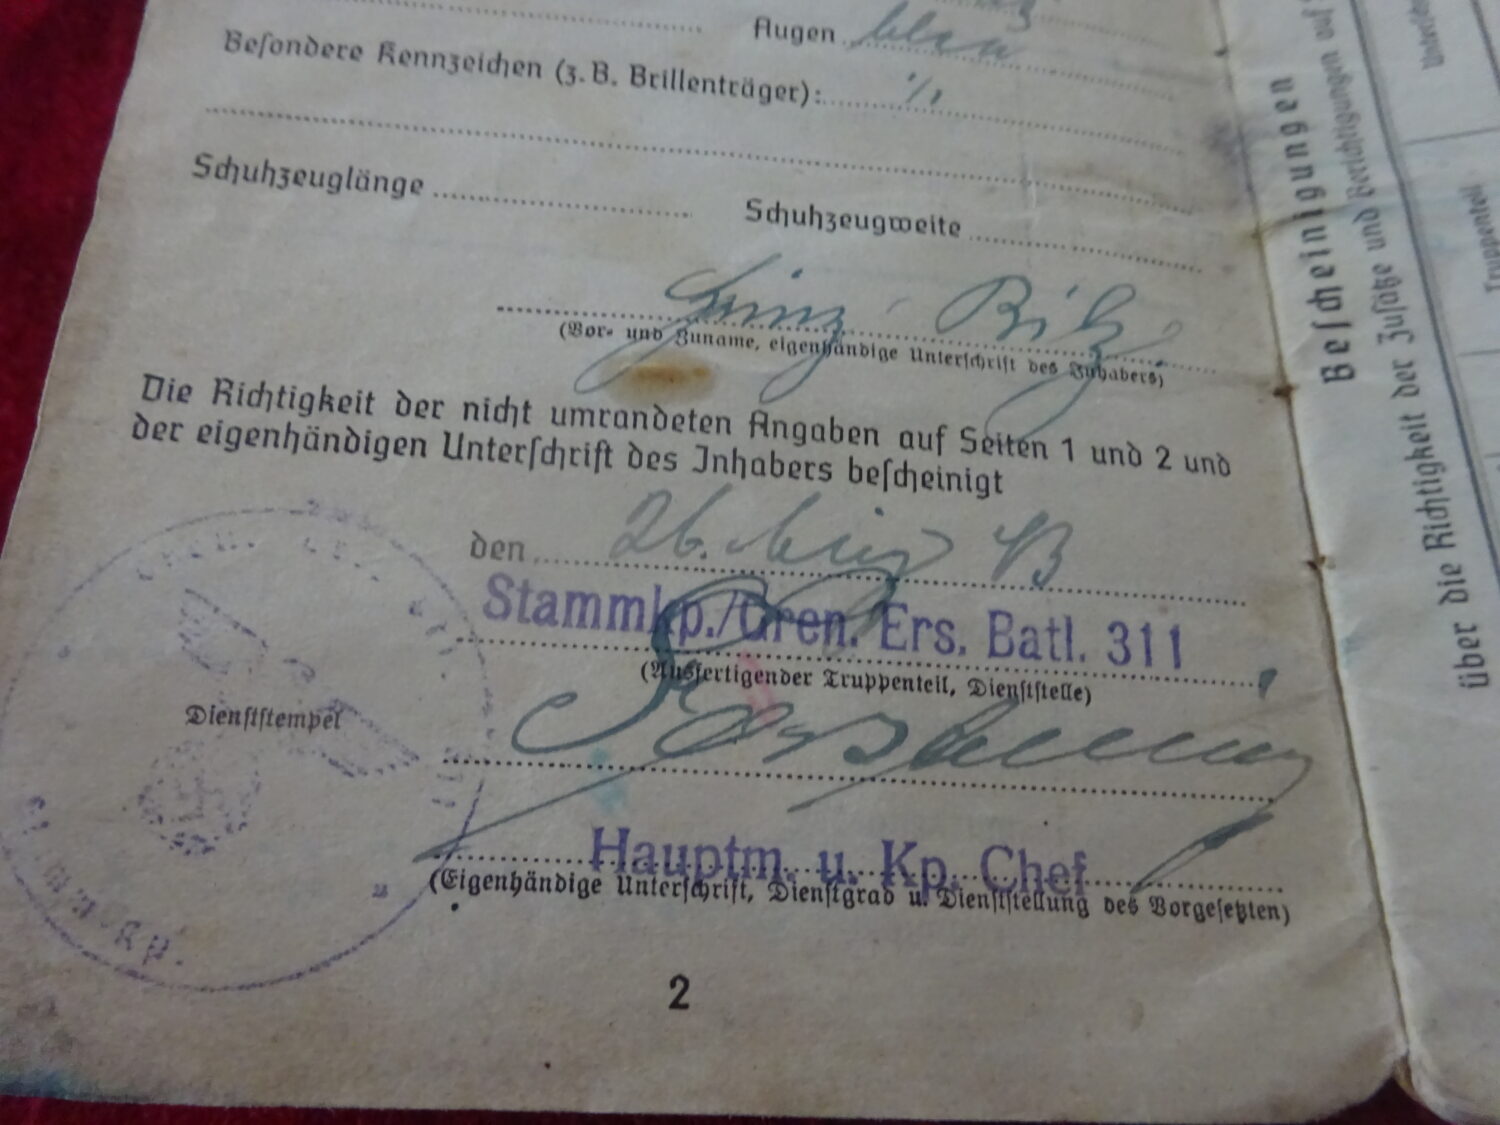 Augen blau
Besondere Kennzeichen (z. B. Brillenträger): ./.
Schuhzeuglänge Schuhzeugweite
(Vor- und Zuname, eigenhändige Unterschrift des Inhabers)
Die Richtigkeit der nicht umrandeten Angaben auf Seiten 1 und 2 und
der eigenhändigen Unterschrift des Inhabers bescheinigt
den 26. März 43
Stammkp./Gren. Ers. Batl. 311
(Ausfertigender Truppenteil, Dienststelle)
Dienststempel
Hauptm. u. Kp. Chef
(Eigenhändige Unterschrift, Dienstgrad u. Dienststellung des Vorgesetzten)
2
Bescheinigungen
über die Richtigkeit der Zusätze und Berichtigungen auf
Truppenteil